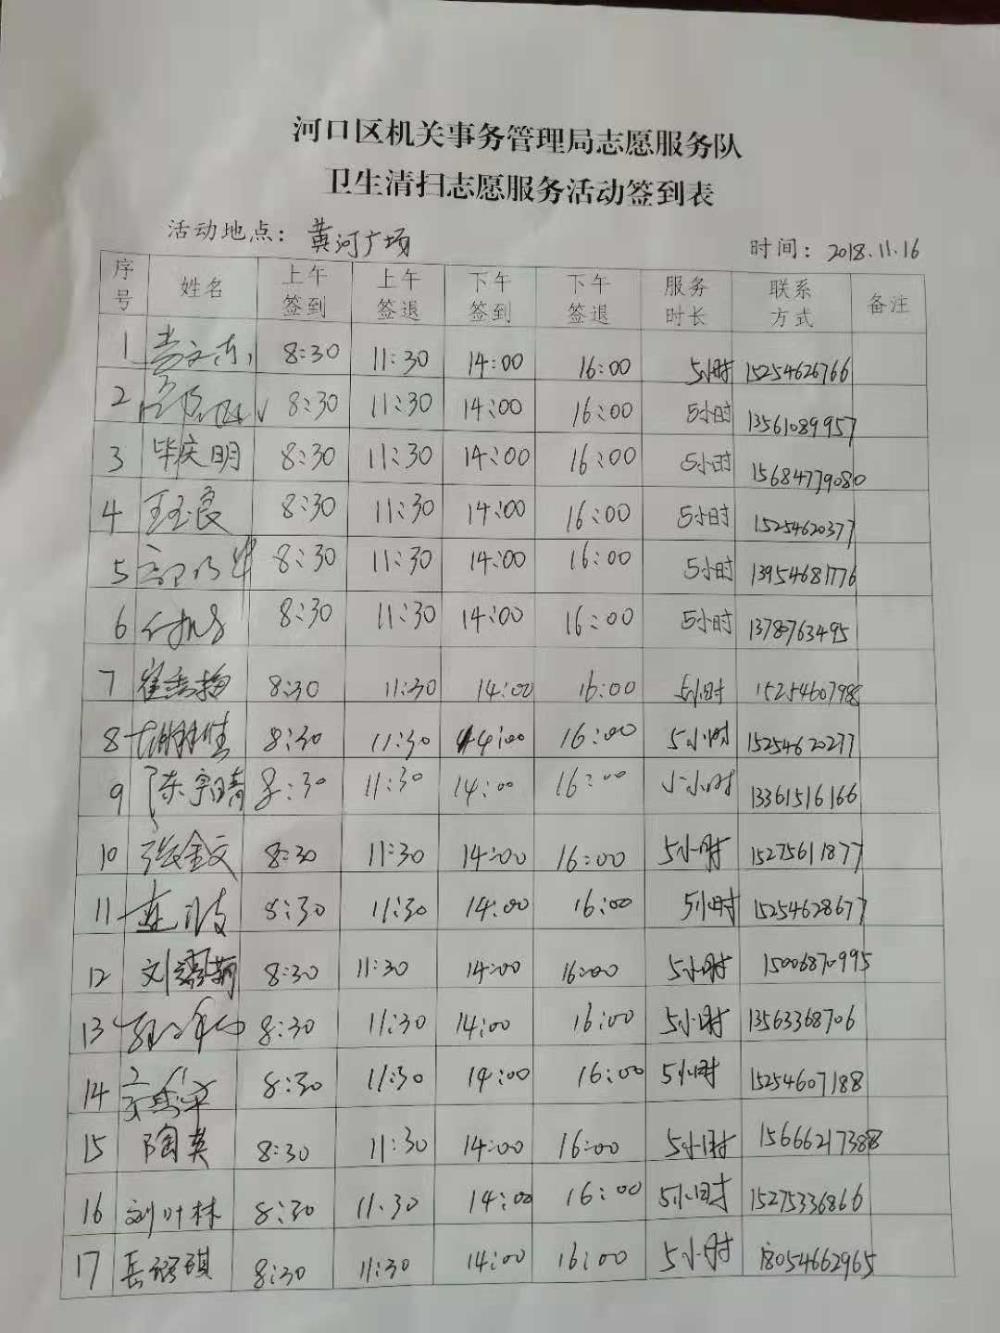 河口区机关事务管理局志愿服务队
卫生清扫志愿服务活动签到表
活动地点：黄河广场 时间：2018.11.16
序号 姓名 上午签到 上午签退 下午签到 下午签退 服务时长 联系方式 备注
1 8:30 11:30 14:00 16:00 5小时 15254626766
2 8:30 11:30 14:00 16:00 5小时 13561089957
3 毕庆明 8:30 11:30 14:00 16:00 5小时 15684779080
4 王玉良 8:30 11:30 14:00 16:00 5小时 15254620377
5 8:30 11:30 14:00 16:00 5小时 13954681776
6 8:30 11:30 14:00 16:00 5小时 1378763495
7 崔秀梅 8:30 11:30 14:00 16:00 5小时 15254607988
8 8:30 11:30 14:00 16:00 5小时 15254620277
9 陈宇晴 8:30 11:30 14:00 16:00 小时 13361516166
10 张金文 8:30 11:30 14:00 16:00 5小时 15275611877
11 8:30 11:30 14:00 16:00 5小时 15254628677
12 8:30 11:30 14:00 16:00 5小时 15006870995
13 8:30 11:30 14:00 16:00 5小时 13563368706
14 8:30 11:30 14:00 16:00 5小时 15254607188
15 陶英 8:30 11:30 14:00 16:00 5小时 15666217388
16 刘叶林 8:30 11:30 14:00 16:00 5小时 15275336866
17 8:30 11:30 14:00 16:00 5小时 18054662965